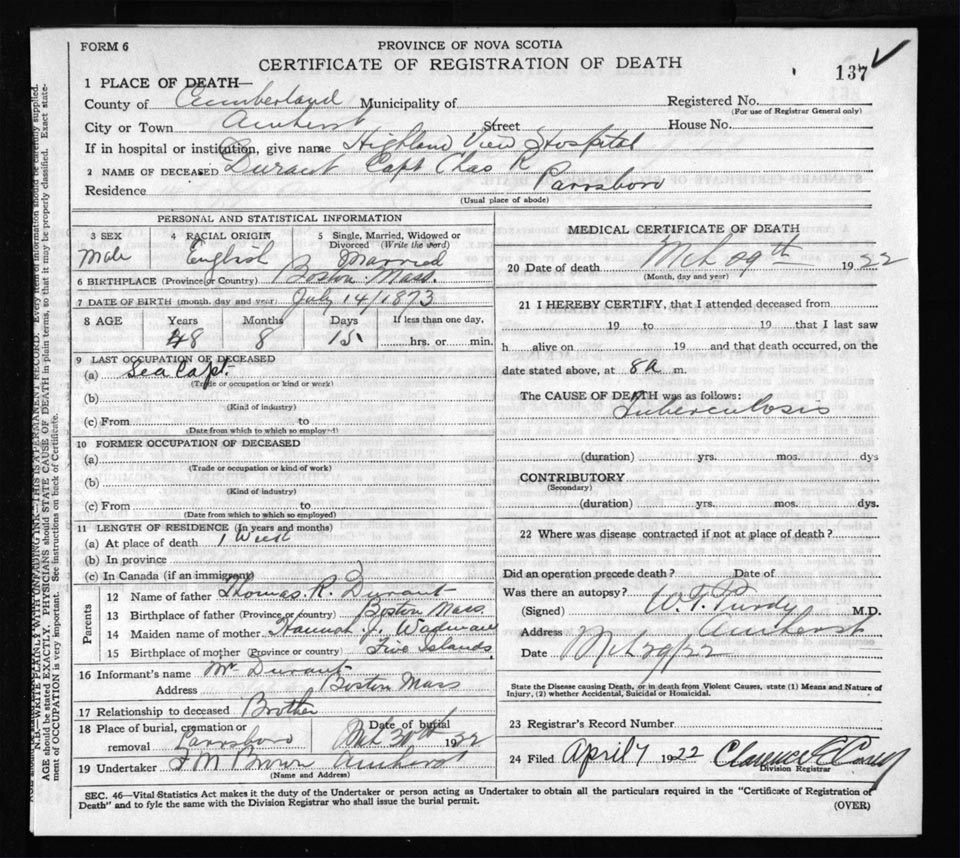 FORM 6
PROVINCE OF NOVA SCOTIA
CERTIFICATE OF REGISTRATION OF DEATH
137
1 PLACE OF DEATH—
County of Cumberland Municipality of Registered No.
(For use of Registrar General only)
City or Town Amherst Street House No.
If in hospital or institution, give name Highland View Hospital
2 NAME OF DECEASED Durant Capt Chas R
Residence Parrsboro
(Usual place of abode)
PERSONAL AND STATISTICAL INFORMATION
3 SEX 4 RACIAL ORIGIN 5 Single, Married, Widowed or Divorced (Write the word)
Male English Married
6 BIRTHPLACE (Province or Country) Boston Mass.
7 DATE OF BIRTH (month, day and year) July 14/1873
8 AGE Years Months Days If less than one day,
48 8 15 hrs. or min.
9 LAST OCCUPATION OF DECEASED
(a) Sea Capt.
(Trade or occupation or kind or work)
(b)
(Kind of industry)
(c) From to
(Date from which to which so employed)
10 FORMER OCCUPATION OF DECEASED
(a)
(Trade or occupation or kind of work)
(b)
(Kind of industry)
(c) From to
(Date from which to which so employed)
11 LENGTH OF RESIDENCE (In years and months)
(a) At place of death 1 Week
(b) In province
(c) In Canada (if an immigrant)
Parents
12 Name of father Thomas R. Durant
13 Birthplace of father (Province or country) Boston Mass.
14 Maiden name of mother Hannah J.
15 Birthplace of mother (Province or country) Five Islands
16 Informant's name Mr Durant
Address Boston Mass
17 Relationship to deceased Brother
18 Place of burial, cremation or removal Parrsboro Date of burial Mch 30th 1922
19 Undertaker F M Brown Amherst
(Name and Address)
MEDICAL CERTIFICATE OF DEATH
20 Date of death Mch 29th 1922
(Month, day and year)
21 I HEREBY CERTIFY, that I attended deceased from
19 to 19 that I last saw
h alive on 19 and that death occurred, on the
date stated above, at 8 a m.
The CAUSE OF DEATH was as follows:
Tuberculosis
(duration) yrs. mos. dys
CONTRIBUTORY
(Secondary)
(duration) yrs. mos. dys.
22 Where was disease contracted if not at place of death?
Did an operation precede death? Date of
Was there an autopsy?
(Signed) W. T. Purdy M.D.
Address Amherst
Date Mch 29/22
State the Disease causing Death, or in death from Violent Causes, state (1) Means and Nature of
Injury, (2) whether Accidental, Suicidal or Homicidal.
23 Registrar's Record Number
24 Filed April 7 1922 Clarence
Division Registrar
SEC. 46—Vital Statistics Act makes it the duty of the Undertaker or person acting as Undertaker to obtain all the particulars required in the "Certificate of Registration of
Death" and to fyle the same with the Division Registrar who shall issue the burial permit.
(OVER)
N.B.—WRITE PLAINLY WITH UNFADING INK—THIS IS A PERMANENT RECORD. Every item of information should be carefully supplied.
AGE should be stated EXACTLY. PHYSICIANS should STATE CAUSE OF DEATH in plain terms, so that it may be properly classified. Exact state-
ment of OCCUPATION is very important. See instructions on back of Certificate.